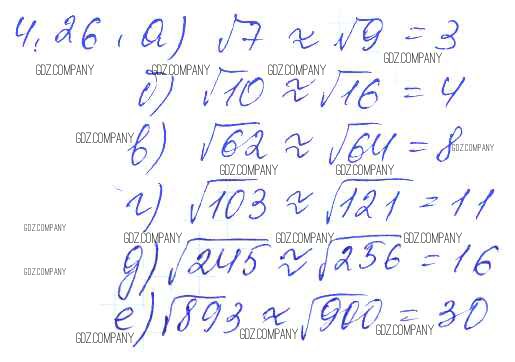 4.26. а) √7 ≈ √9 = 3
GDZ.COMPANY GDZ.COMPANY GDZ.COMPANY GDZ.COMPANY
б) √10 ≈ √16 = 4
GDZ.COMPANY
в) √62 ≈ √64 = 8 GDZ.COMPANY
GDZ.COMPANY GDZ.COMPANY
г) √103 ≈ √121 = 11
GDZ.COMPANY
GDZ.COMPANY GDZ.COMPANY GDZ.COMPANY
д) √245 ≈ √256 = 16
GDZ.COMPANY
е) √893 ≈ √900 = 30
GDZ.COMPANY GDZ.COMPANY GDZ.COMPANY